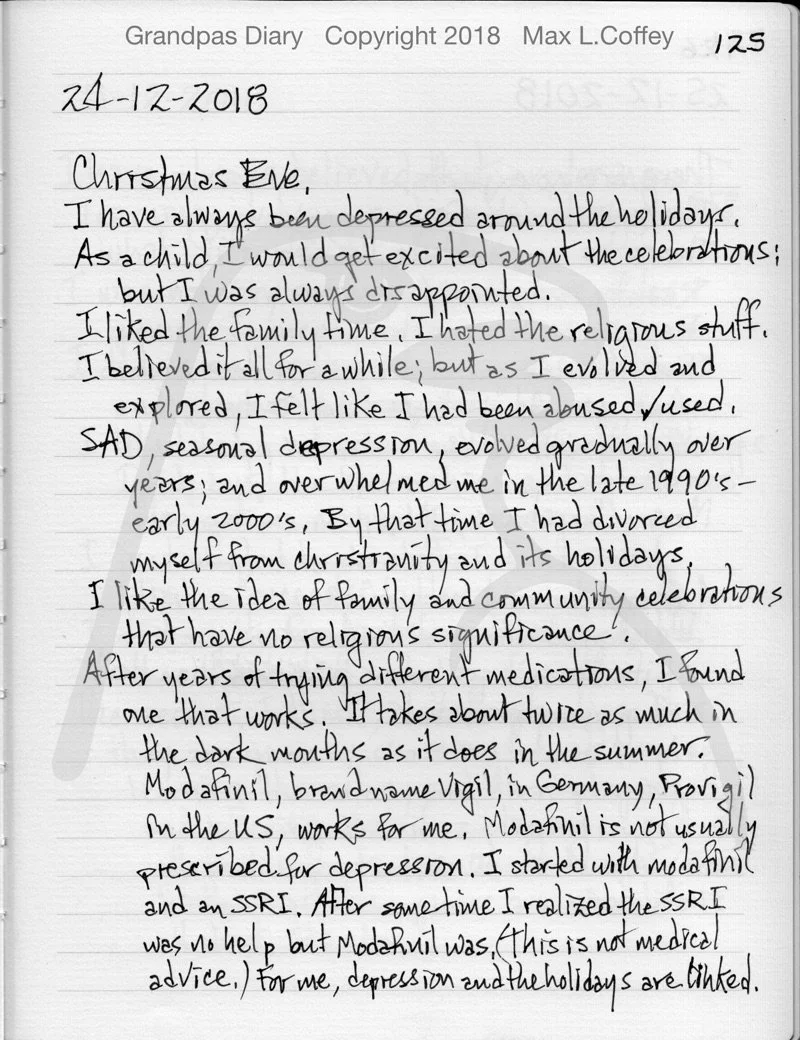 Grandpas Diary Copyright 2018 Max L.Coffey
125
24-12-2018
Christmas Eve.
I have always been depressed around the holidays.
As a child, I would get excited about the celebrations;
but I was always disappointed.
I liked the family time. I hated the religious stuff.
I believed it all for a while; but as I evolved and
explored, I felt like I had been abused/used.
SAD, seasonal depression, evolved gradually over
years; and overwhelmed me in the late 1990's –
early 2000's. By that time I had divorced
myself from christianity and its holidays.
I like the idea of family and community celebrations
that have no religious significance.
After years of trying different medications, I found
one that works. It takes about twice as much in
the dark months as it does in the summer.
Modafinil, brand name Vigil, in Germany, Provigil
in the US, works for me. Modafinil is not usually
prescribed for depression. I started with modafinil
and an SSRI. After some time I realized the SSRI
was no help but Modafinil was. (This is not medical
advice.) For me, depression and the holidays are linked.